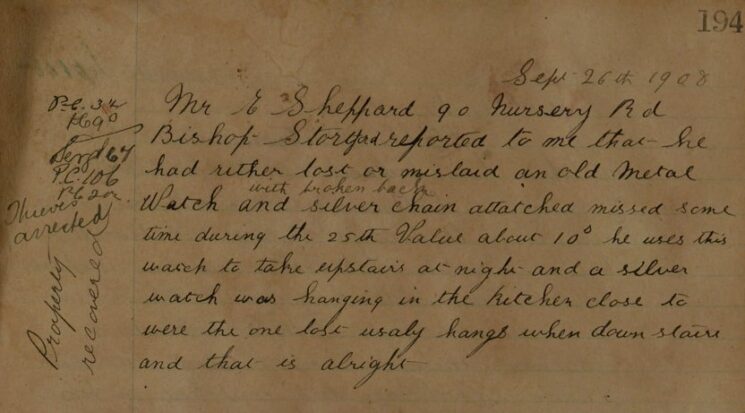 194
Sept 26th 1908
Mr E Sheppard 90 Nursery Rd
Bishop Stortford reported to me that he
had rither lost or mislaid an old Metal
with broken back
Watch and silver chain attatched missed some
time during the 25th Value about 10s he uses this
watch to take upstairs at night and a silver
watch was hanging in the kitchen close to
were the one lost usaly hangs when down stairs
and that is alright
P.C. 32
H90
Sergt 64
P.C. 106
Thieves
arrested
Property
recovered